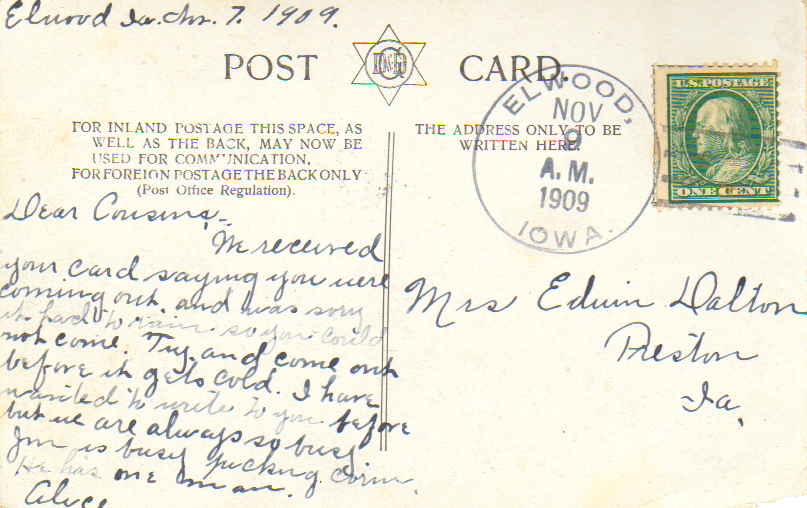 Elwood Ia. Nov. 7. 1909.
POST CARD.
FOR INLAND POSTAGE THIS SPACE, AS
WELL AS THE BACK, MAY NOW BE
USED FOR COMMUNICATION,
FOR FOREIGN POSTAGE THE BACK ONLY
(Post Office Regulation).
THE ADDRESS ONLY TO BE
WRITTEN HERE.
ELWOOD,
NOV
9
A.M.
1909
IOWA.
U.S. POSTAGE
ONE CENT
Dear Cousins,-
We received
your card saying you were
coming out. and was sorry
it had to rain so you could
not come. Try and come out
before it gets cold. I have
wanted to write to you before
but we are always so busy
Jim is busy picking corn.
He has one man.
Alyce
Mrs Edwin Dalton
Preston
Ia.